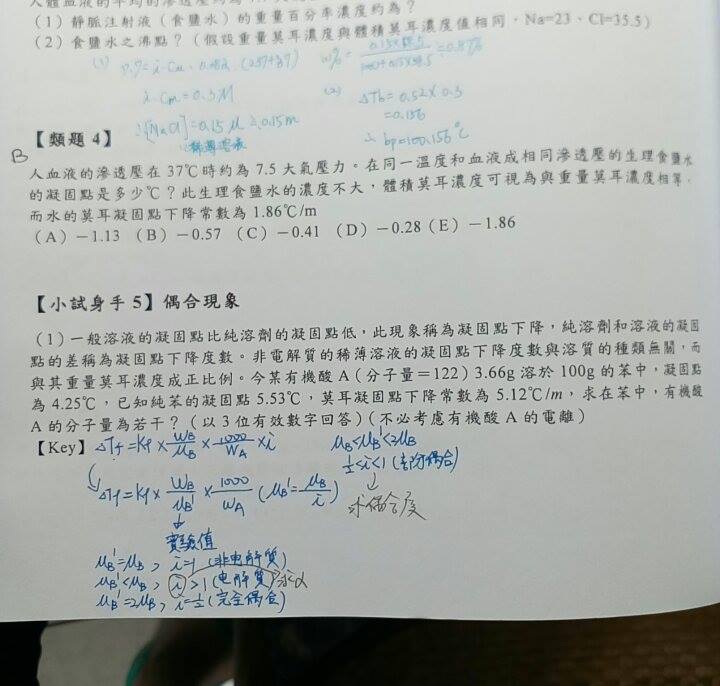 (1) 靜脈注射液（食鹽水）的重量百分率濃度約為？
(2) 食鹽水之沸點？（假設重量莫耳濃度與體積莫耳濃度值相同，Na=23、Cl=35.5）
(1)
i·Cm = 0.3M
∴[NaCl]=0.15M≒0.15m
稀薄溶液
w%=
≒0.87%
(2) ΔTb=0.52×0.3
=0.156
∴ bp=100.156°C
【類題 4】
B
人血液的滲透壓在 37℃時約為 7.5 大氣壓力。在同一溫度和血液成相同滲透壓的生理食鹽水
的凝固點是多少℃？此生理食鹽水的濃度不大，體積莫耳濃度可視為與重量莫耳濃度相等，
而水的莫耳凝固點下降常數為 1.86℃/m
(A) －1.13 (B) －0.57 (C) －0.41 (D) －0.28 (E) －1.86
【小試身手 5】偶合現象
(1) 一般溶液的凝固點比純溶劑的凝固點低，此現象稱為凝固點下降，純溶劑和溶液的凝固
點的差稱為凝固點下降度數。非電解質的稀薄溶液的凝固點下降度數與溶質的種類無關，而
與其重量莫耳濃度成正比例。今某有機酸 A（分子量＝122）3.66g 溶於 100g 的苯中，凝固點
為 4.25℃，已知純苯的凝固點 5.53℃，莫耳凝固點下降常數為 5.12℃/m，求在苯中，有機酸
A 的分子量為若干？（以 3 位有效數字回答）（不必考慮有機酸 A 的電離）
【Key】ΔTf=Kf×WB/MB×1000/WA×i
ΔTf=Kf×WB/MB'×1000/WA (MB'=MB/i)
實驗值
MB'=MB, i=1 (非電解質)
MB'<MB, i>1 (電解質) 求α
MB'=2MB, i=1/2 (完全偶合)
MB<MB'<2MB
1/2<i<1 (部分偶合)
求偶合度